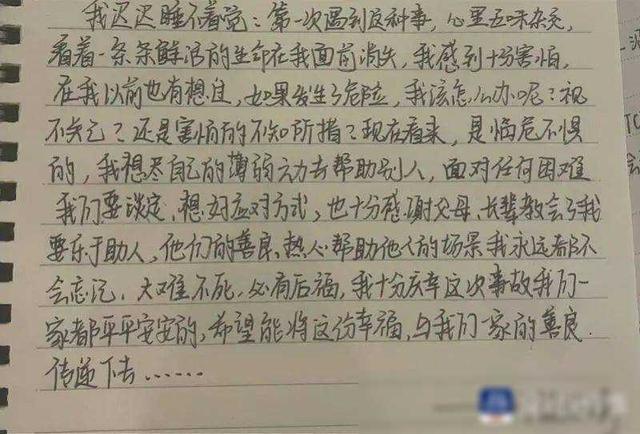 我迟迟睡不着觉：第一次遇到这种事，心里五味杂陈，
看着一条条鲜活的生命在我面前消失，我感到十分害怕，
在我以前也有想过，如果发生了危险，我该怎么办呢？视
不关己？还是害怕的不知所措？现在看来，是临危不惧
的，我想尽自己的薄弱之力去帮助别人，面对任何困难
我们要淡定，想好应对方式，也十分感谢父母，长辈教会了我
要乐于助人，他们的善良、热心帮助他人的场景我永远都不
会忘记，大难不死，必有后福，我十分庆幸这次事故我们一
家都平平安安的，希望能将这份幸福，与我们一家的善良
传递下去……